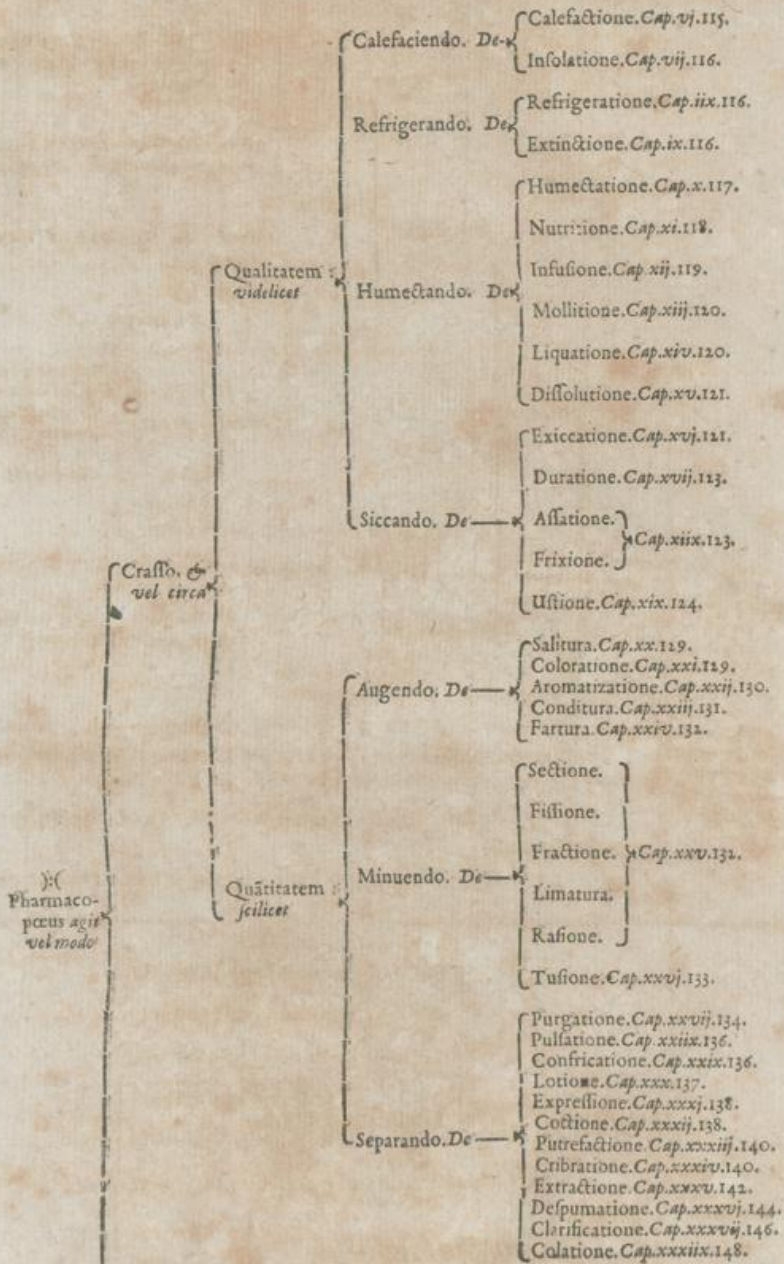 Calefaciendo. De
Calefactione. Cap. vj. 115.
Insolatione. Cap. vij. 116.
Refrigerando. De
Refrigeratione. Cap. iix. 116.
Extinctione. Cap. ix. 116.
Qualitatem :
videlicet
Humectando. De
Humectatione. Cap. x. 117.
Nutritione. Cap. xi. 118.
Infusione. Cap. xij. 119.
Mollitione. Cap. xiij. 120.
Liquatione. Cap. xiv. 120.
Dissolutione. Cap. xv. 121.
Siccando. De
Exiccatione. Cap. xvj. 121.
Duratione. Cap. xvij. 123.
Assatione.
Frixione.
Cap. xiix. 123.
Ustione. Cap. xix. 124.
Crasso, &
vel circa
Augendo. De
Salitura. Cap. xx. 129.
Coloratione. Cap. xxi. 129.
Aromatizatione. Cap. xxij. 130.
Conditura. Cap. xxiij. 131.
Fartura. Cap. xxiv. 132.
Quãtitatem :
scilicet
Minuendo. De
Sectione.
Fissione.
Fractione.
Limatura.
Rasione.
Cap. xxv. 132.
Tusione. Cap. xxvj. 133.
):(
Pharmaco-
pœus agit
vel modo
Separando. De
Purgatione. Cap. xxvij. 134.
Pulsatione. Cap. xxiix. 136.
Confricatione. Cap. xxix. 136.
Lotione. Cap. xxx. 137.
Expressione. Cap. xxxj. 138.
Coctione. Cap. xxxij. 138.
Putrefactione. Cap. xxxiij. 140.
Cribratione. Cap. xxxiv. 140.
Extractione. Cap. xxxv. 142.
Despumatione. Cap. xxxvj. 144.
Clarificatione. Cap. xxxvij. 146.
Colatione. Cap. xxxiix. 148.